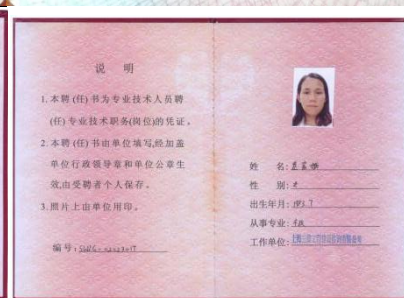 说 明
1. 本聘 (任) 书为专业技术人员聘
(任) 专业技术职务(岗位)的凭证。
2. 本聘 (任) 书由单位填写,经加盖
单位行政领导章和单位公章生
效,由受聘者个人保存。
3. 照片上由单位用印。
编号:
姓 名:
性 别: 女
出生年月:
从事专业:
工作单位: